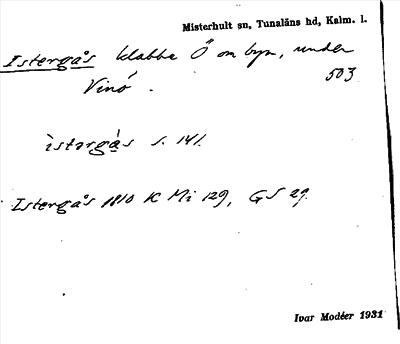 Misterhult sn, Tunaläns hd, Kalm. l.
Istergås klabbe Ö om byn, under
Vinö. 503
ìstərgås s. 141.
Istergås 1810 K Mi 129, GS 29.
Ivar Modéer 1931